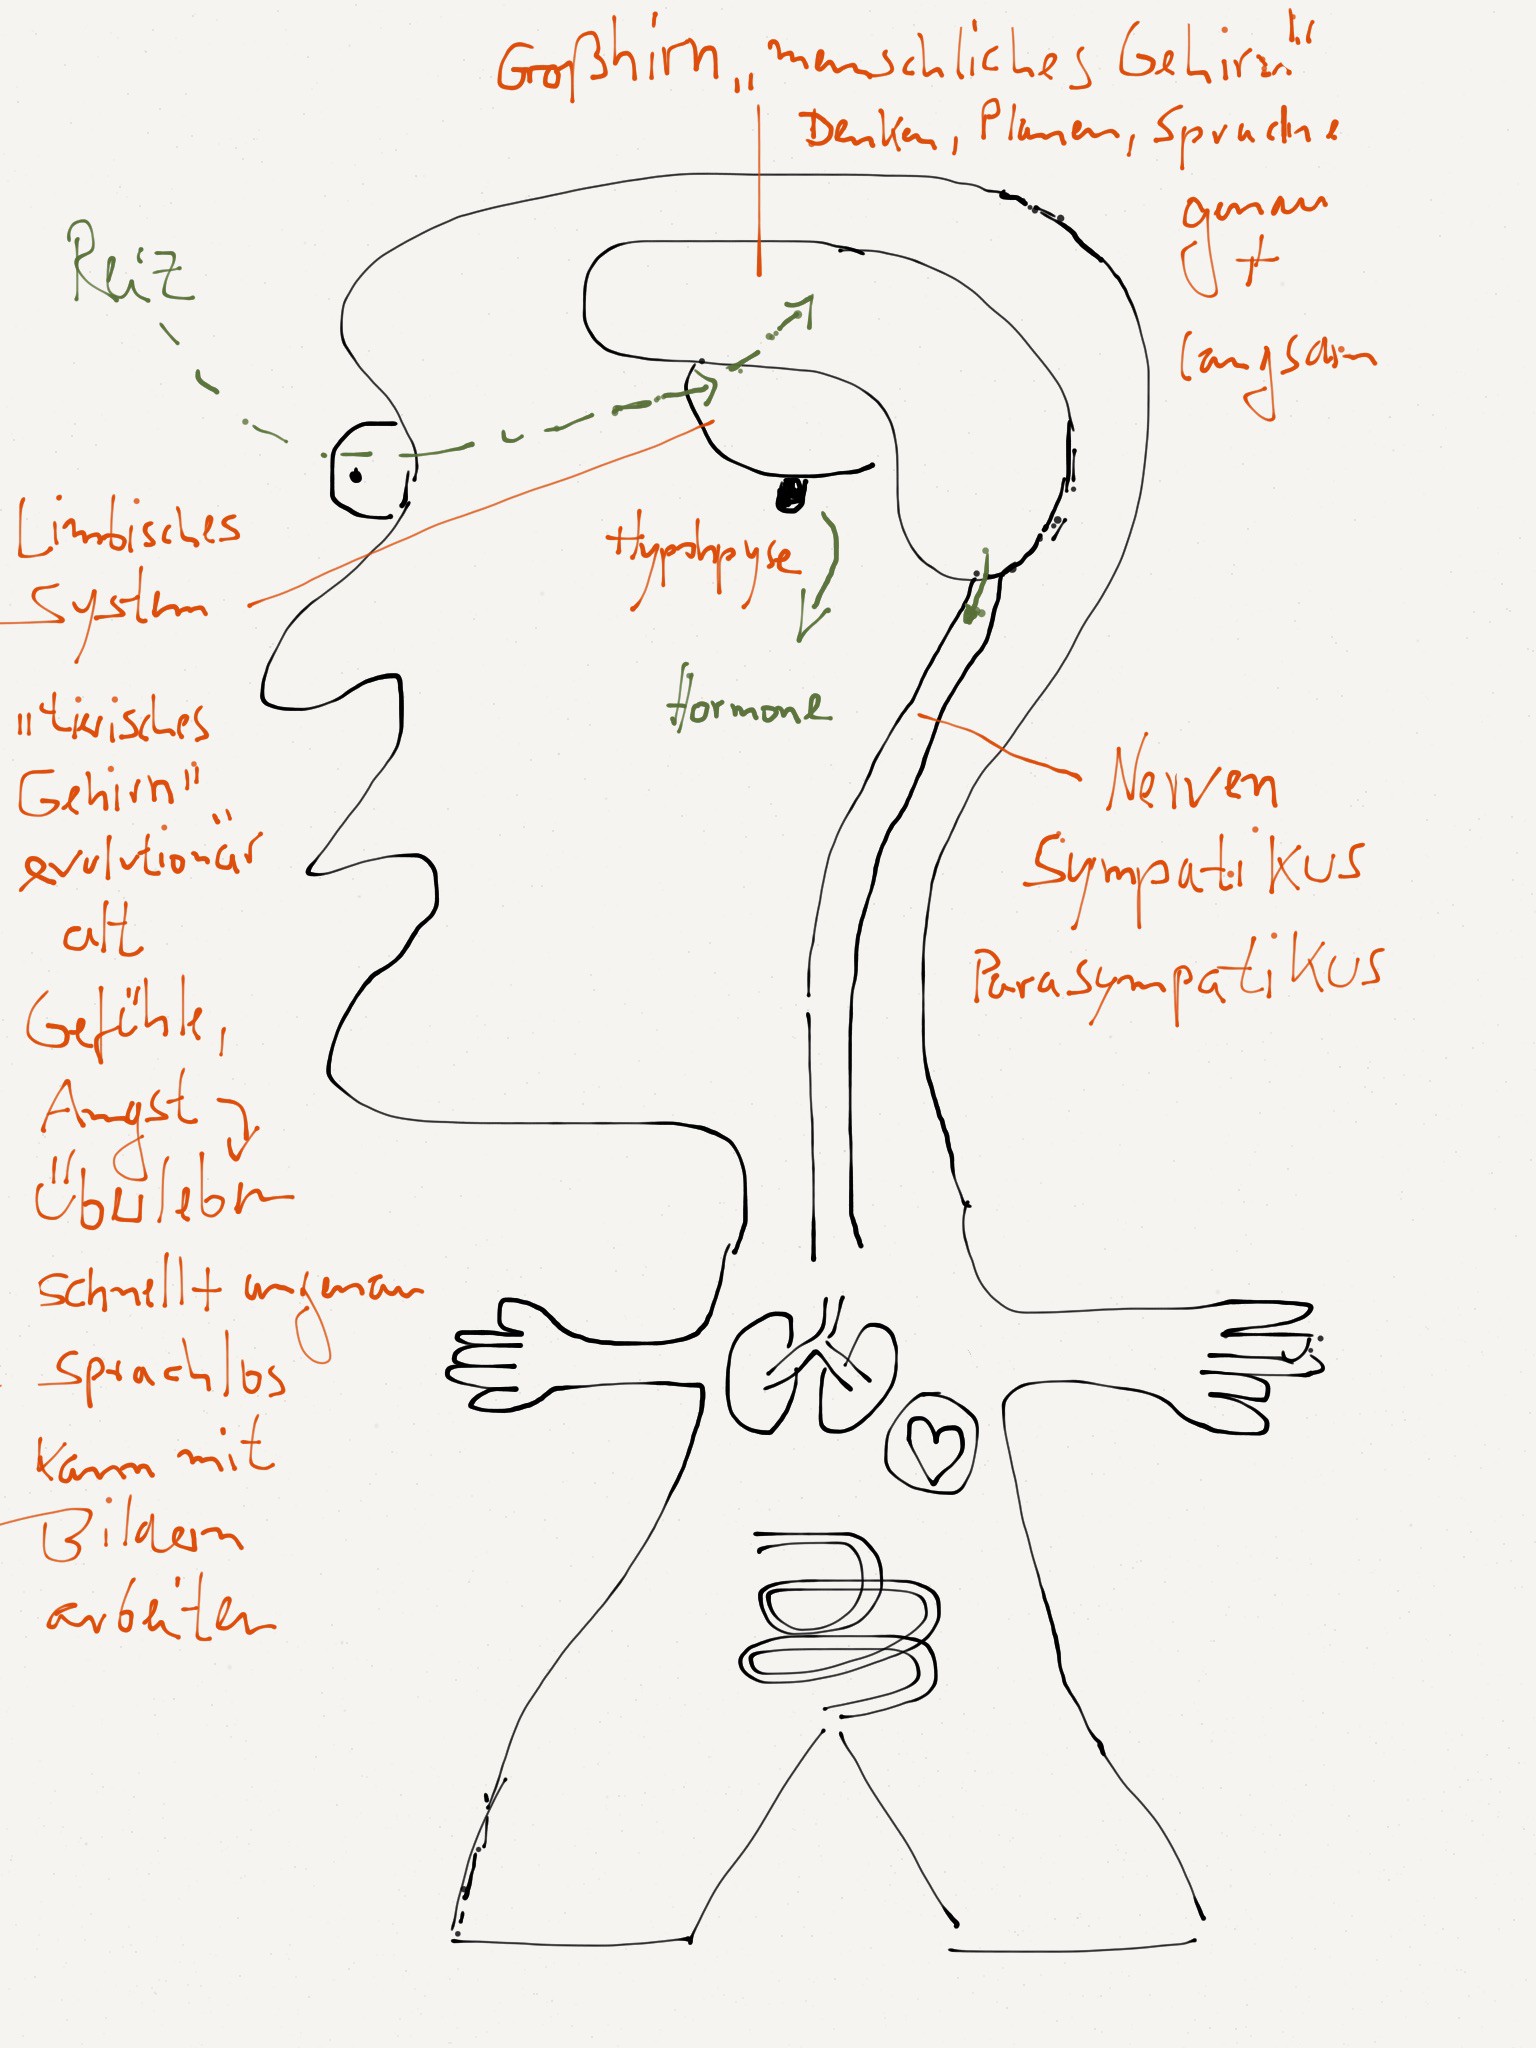 Großhirn „menschliches Gehirn"
Denken, Planen, Sprache
genau
+
langsam
Reiz
Limbisches
System
"tierisches
Gehirn"
evolutionär
alt
Gefühle,
Angst
Überleben
schnell + ungenau
sprachlos
kann mit
Bildern
arbeiten
Hypohpyse
Hormone
Nerven
Sympatikus
Parasympatikus